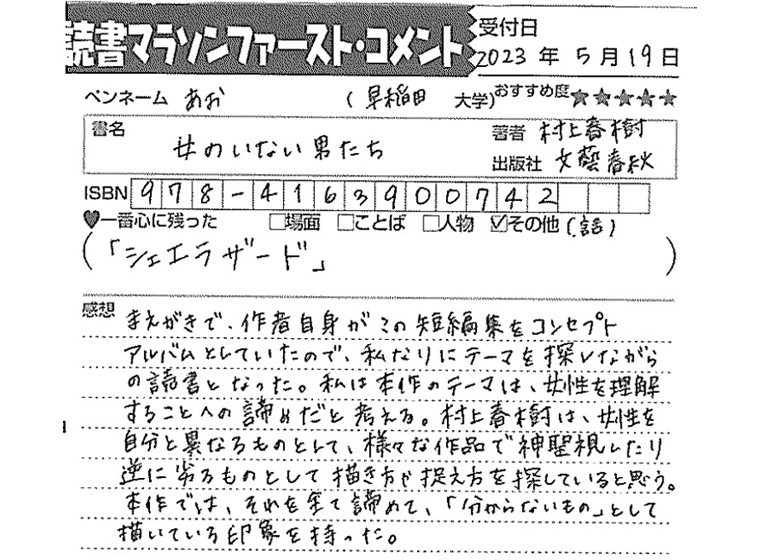 読書マラソンファースト・コメント
受付日
2023 年 5 月 19 日
ペンネーム あお (早稲田 大学) おすすめ度★★★★★
書名 女のいない男たち
著者 村上春樹
出版社 文藝春秋
ISBN 978-4163900742
♥一番心に残った □場面 □ことば □人物 ☑その他 (話)
(「シェエラザード」)
感想 まえがきで、作者自身がこの短編集をコンセプト
アルバムとしていたので、私なりにテーマを探しながら
の読書となった。私は本作のテーマは、女性を理解
することへの諦めだと考える。村上春樹は、女性を
自分と異なるものとして、様々な作品で神聖視したり
逆に劣るものとして描き方や捉え方を探していると思う。
本作では、それを全て諦めて、「分からないもの」として
描いている印象を持った。